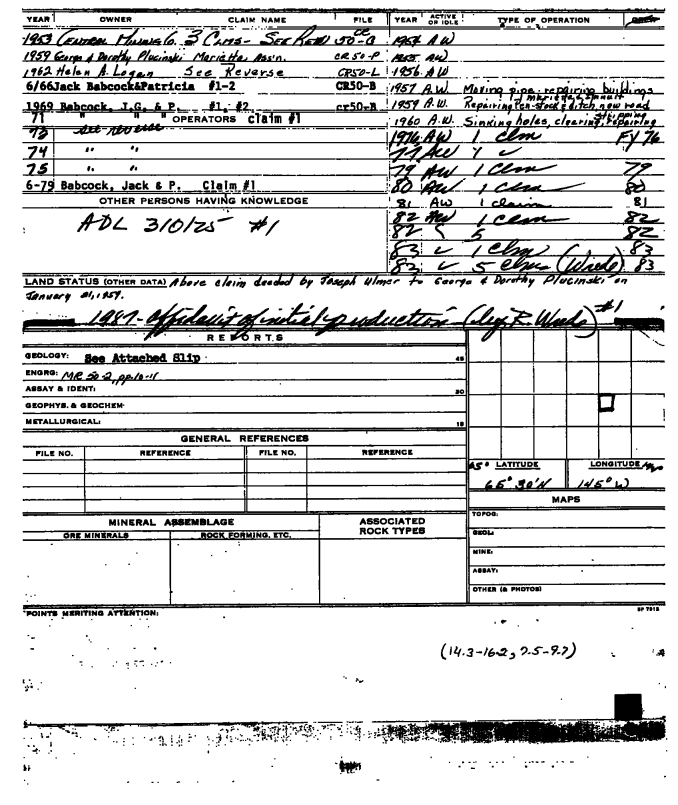 YEAR OWNER CLAIM NAME FILE YEAR ACTIVE OR IDLE TYPE OF OPERATION
1953 Central Mining Co. 3 Clms - See Rev 50-C 1954 AW
1959 George & Dorothy Plucinski Marietta Ass'n. CR50-P 1955 AW
1962 Helen A. Logan See Reverse CR50-L 1956 AW
6/66 Jack Babcock&Patricia #1-2 CR50-B 1957 A.W. Moving pipe-repairing buildings
1969 Babcock, J.G. & P. #1, #2 cr50-B 1959 A.W. Repairing pen-stock & ditch, new road
71 " " OPERATORS Claim #1 1960 A.W. Sinking holes, clearing, stripping, repairing
73 see reverse 1976 AW 1 clm FY 76
74 " " 77 AW
75 " " 79 AW 1 Clm 79
6-79 Babcock, Jack & P. Claim #1 80 AW 1 clm 80
OTHER PERSONS HAVING KNOWLEDGE 81 AW 1 claim 81
ADL 310125 #1 82 AW 1 clm 82
82 5 82
83 1 Clm 83
83 5 Clms (Wade) 83
LAND STATUS (OTHER DATA) Above claim deeded by Joseph Ulmer to George & Dorothy Plucinski on
January 21, 1959.
1987 - Affidavit of initial production (R. Wade) #1
REPORTS
GEOLOGY: See Attached Slip 45
ENGRG: MR 50-2, pp. 10-11
ASSAY & IDENT: 30
GEOPHYS. & GEOCHEM.
METALLURGICAL: 15
GENERAL REFERENCES
FILE NO. REFERENCE FILE NO. REFERENCE
65° LATITUDE LONGITUDE
65° 30'N 145° W
MAPS
MINERAL ASSEMBLAGE ASSOCIATED ROCK TYPES TOPOG:
ORE MINERALS ROCK FORMING, ETC. GEOL:
MINE:
ASSAY:
OTHER (& PHOTOS)
POINTS MERITING ATTENTION: SP 7913
(14.3-16.2, 7.5-9.7)